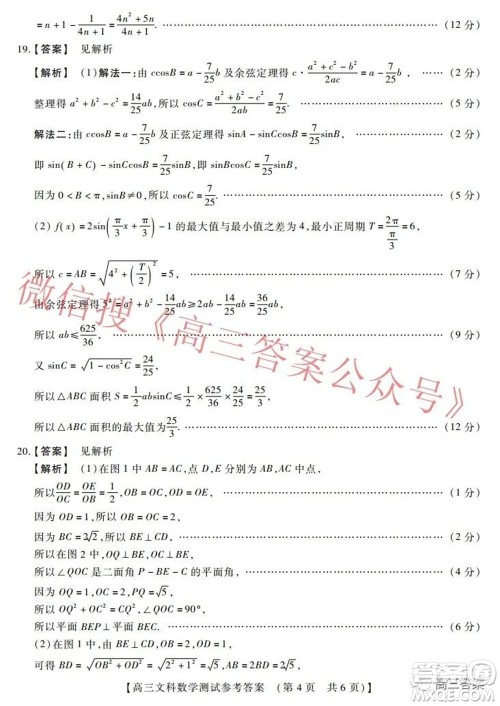 =n+1-1/(4n+1)=(4n²+5n)/(4n+1). (12 分)
19.【答案】 见解析
【解析】 (1)解法一:由 ccosB=a-7/25 b 及余弦定理得 c·(a²+c²-b²)/2ac=a-7/25 b, (2 分)
整理得 a²+b²-c²=14/25 ab,所以 cosC=(a²+b²-c²)/2ab=7/25. (5 分)
解法二:由 ccosB=a-7/25 b 及正弦定理得 sinA-sinCcosB=7/25 sinB, (2 分)
即 sin(B+C)-sinCcosB=7/25 sinB,即 sinBcosC=7/25 sinB,
因为 0<B<π,sinB≠0,所以 cosC=7/25. (5 分)
(2) f(x)=2sin(π/3 x+π/3)-1 的最大值与最小值之差为 4,最小正周期 T=2π/(π/3)=6,
所以 c=AB=√(4²+(T/2)²)=5, (7 分)
由余弦定理得 5²=a²+b²-14/25 ab≥2ab-14/25 ab=36/25 ab,
所以 ab≤625/36, (9 分)
又 sinC=√(1-cos²C)=24/25,
所以△ABC 面积 S=1/2 absinC≤1/2×625/36×24/25=25/3,
所以△ABC 面积的最大值为 25/3. (12 分)
20.【答案】 见解析
【解析】 (1)在图 1 中 AB=AC,点 D,E 分别为 AB,AC 中点,
所以 OD/OC=OE/OB=1/2,OB=OC,OD=OE, (1 分)
因为 OD=1,所以 OB=OC=2,
因为 BC=2√2,所以 BE⊥CD, (2 分)
所以在图 2 中,OQ⊥BE,OC⊥BE,
所以∠QOC 是二面角 P-BE-C 的平面角, (4 分)
因为 OQ=1,OC=2,PQ=√5,
所以 OQ²+OC²=CQ²,∠QOC=90°,
所以平面 BEP⊥平面 BEC. (6 分)
(2)在图 1 中,由 BE⊥CD,
可得 BD=√(OB²+OD²)=√5,CE=√(OE²+OC²)=√5,
【高三文科数学测试参考答案 (第 4 页 共 6 页)】
微信搜《高三答案公众号》
高三答案